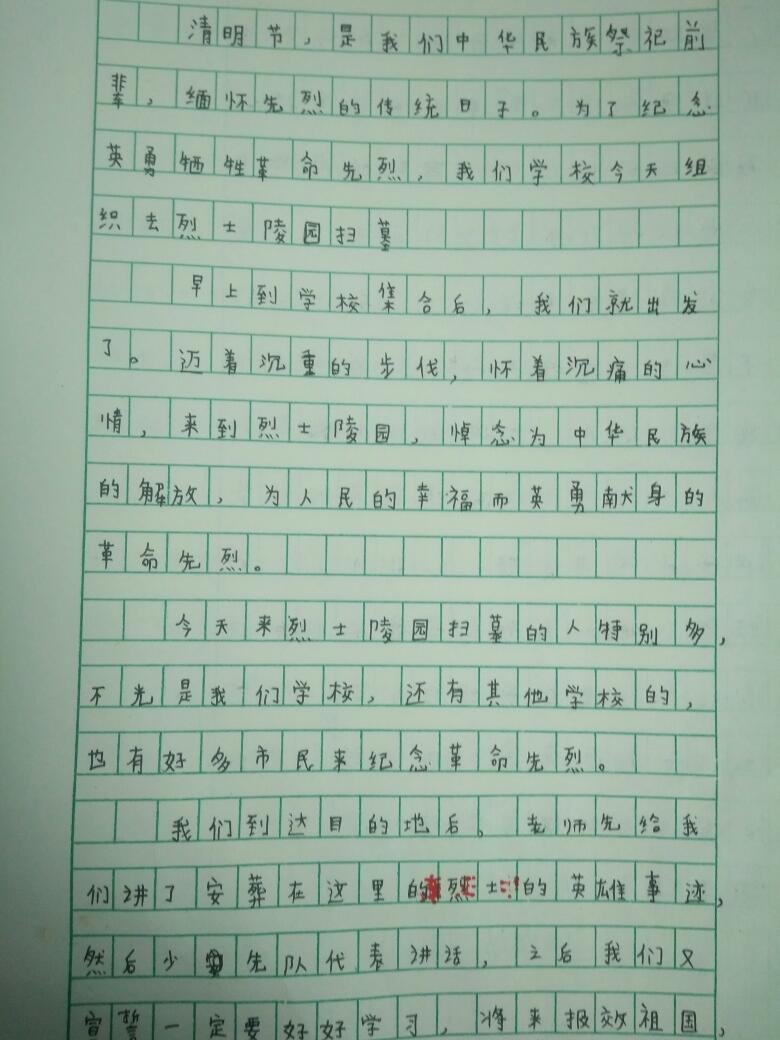 清明节，是我们中华民族祭祀前
辈，缅怀先烈的传统日子。为了纪念
英勇牺牲革命先烈，我们学校今天组
织去烈士陵园扫墓
早上到学校集合后，我们就出发
了。迈着沉重的步伐，怀着沉痛的心
情，来到烈士陵园，悼念为中华民族
的解放，为人民的幸福而英勇献身的
革命先烈。
今天来烈士陵园扫墓的人特别多，
不光是我们学校，还有其他学校的，
也有好多市民来纪念革命先烈。
我们到达目的地后。老师先给我
们讲了安葬在这里的烈士的英雄事迹，
然后少先队代表讲话，之后我们又
宣誓一定要好好学习，将来报效祖国，